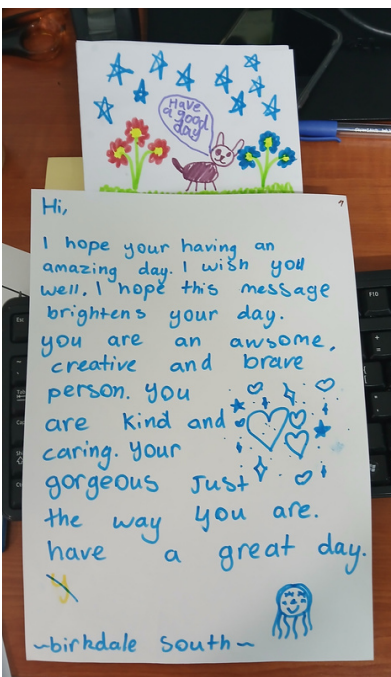 Have
a good
day
Hi,
I hope your having an
amazing day. I wish you
well. I hope this message
brightens your day.
you are an awsome,
creative and brave
person. you
are kind and
caring. your
gorgeous Just
the way you are.
have a great day.
~birkdale south~
F10